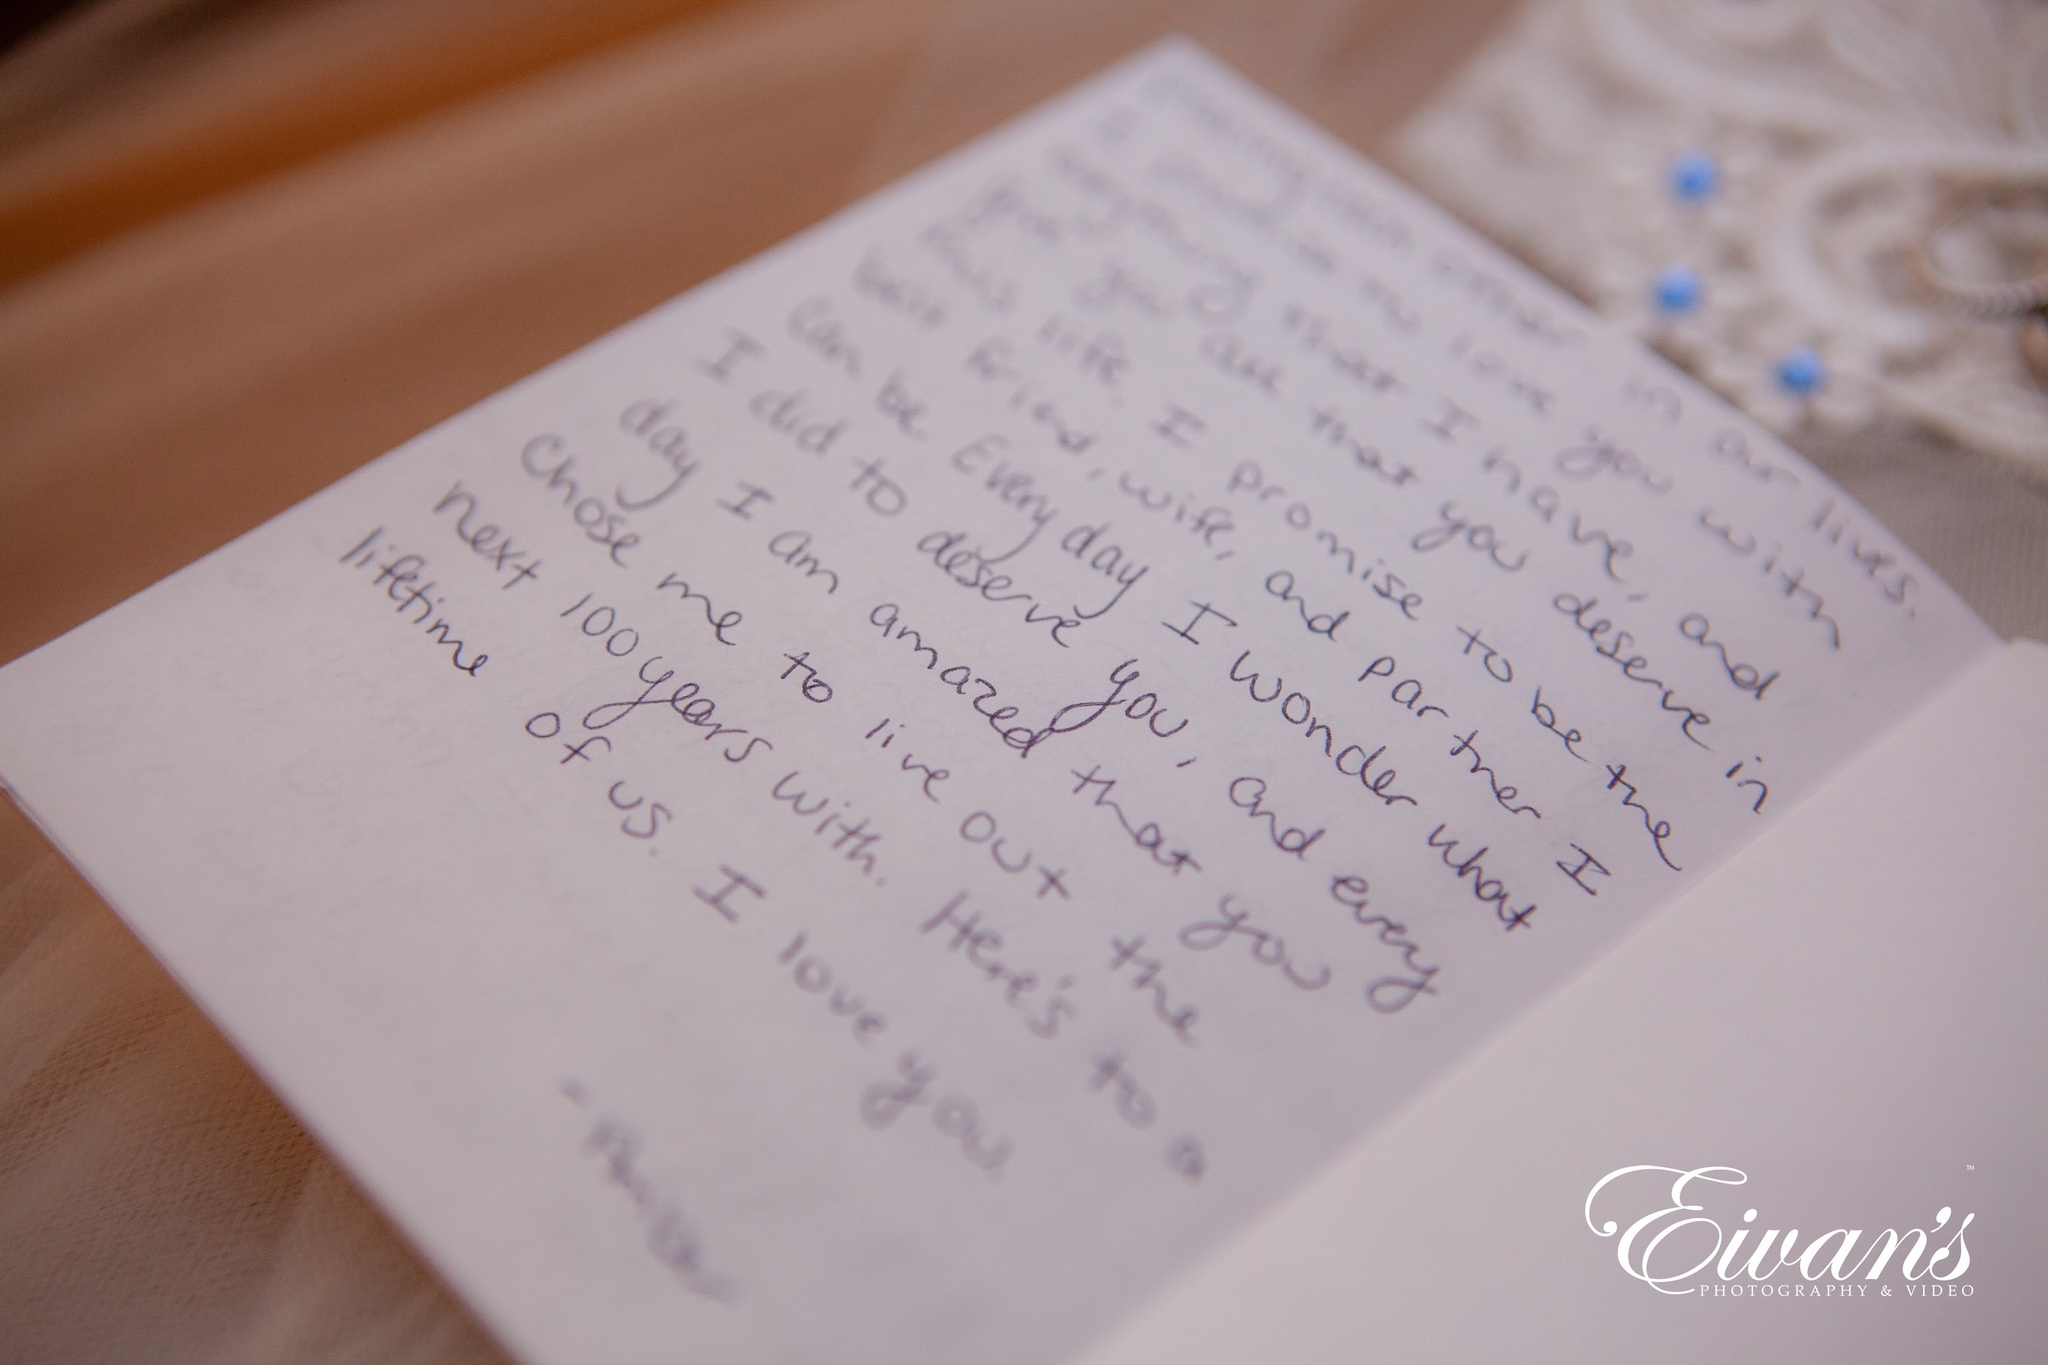 other in our lives.
I promise to love you with
everything that I have, and
give you all that you deserve in
this life. I promise to be the
best friend, wife, and partner I
can be. Every day I wonder what
I did to deserve you, and every
day I am amazed that you
chose me to live out the
next 100 years with. Here's to a
lifetime of us. I love you.
Eivan's
PHOTOGRAPHY & VIDEO
TM